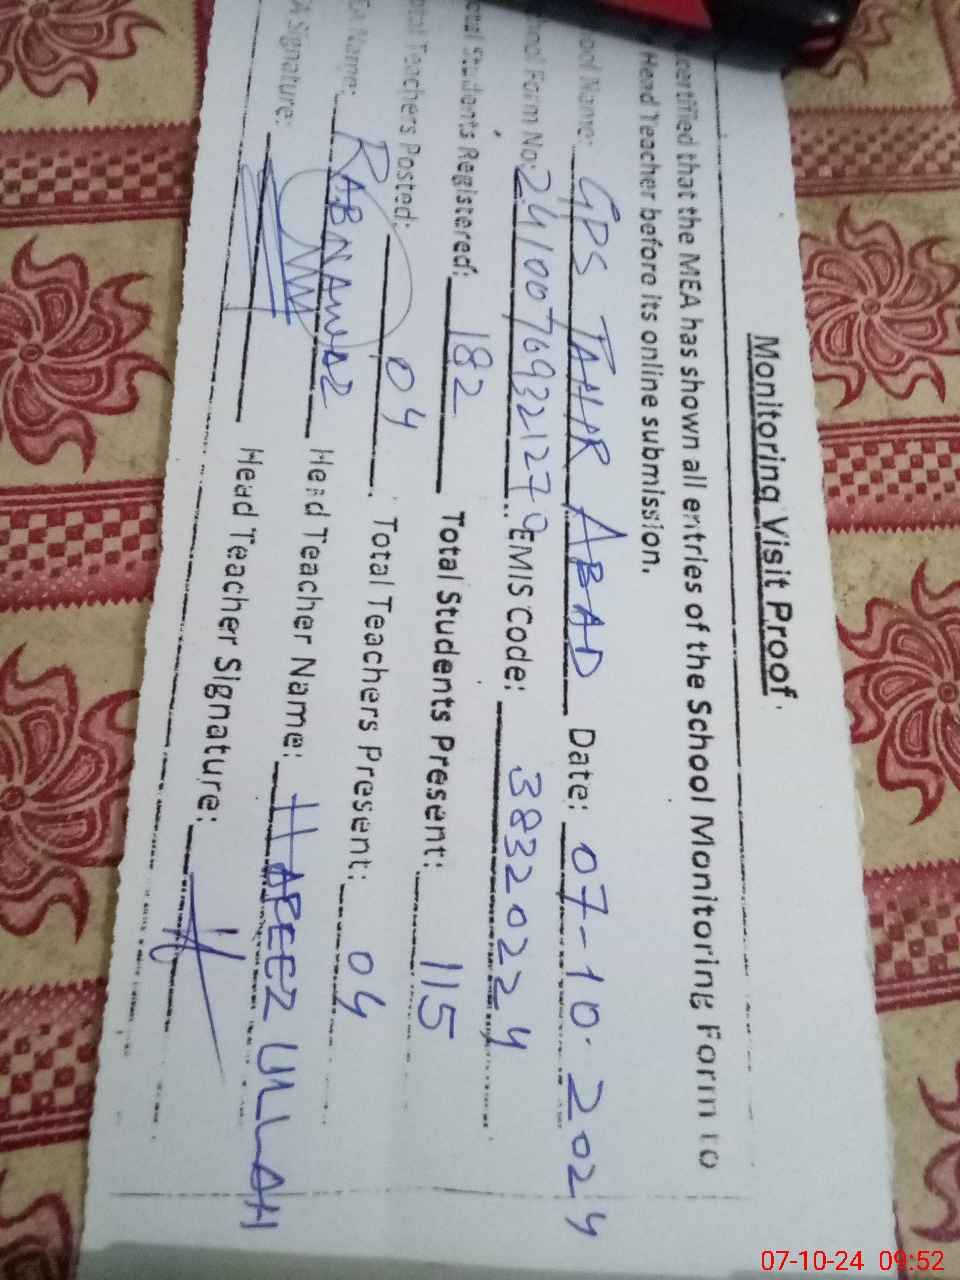 Monitoring Visit Proof
certified that the MEA has shown all entries of the School Monitoring Form to
Head Teacher before its online submission.
ool Name: GPS TAHIR ABAD Date: 07-10-2024
hool Form No: 24100769321279 EMIS Code: 38322024
otal Students Registered: 182 Total Students Present: 115
otal Teachers Posted: 04 Total Teachers Present: 04
EA Name: RABNAWAZ Head Teacher Name: HAFEEZ ULLAH
A Signature: Head Teacher Signature:
07-10-24 09:52